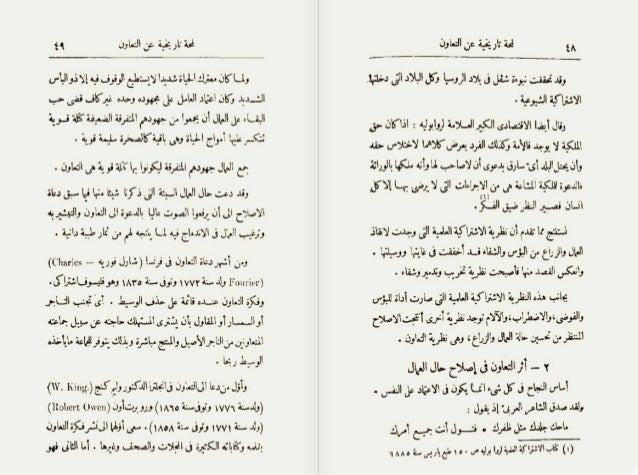 ٤٨
لمحة تاريخية عن التعاون
وقد تحققت نبوءة شفل فى بلاد الروسيا وكل البلاد التى دخلتها
الاشتراكية الشيوعية .
وقال أيضا الاقتصادى الكبير العلامة لروابوليه : اذا كان حق
الملكية لا يوجد فالأمة وكذلك الفرد يعرض كلاهما لاختلاس حقه
وأن يحتل البلد أى سارق بدعوى أن لا صاحب لها وأنه ملكها بالوراثة
فالدعوة للملكية المشاعة هى من الاجراءات التى لا يرضى بها إلا كل
انسان قصير النظر ضيق الفكر (١) .
نستنتج مما تقدم أن نظرية الاشتراكية العلمية التى وجدت لانقاذ
العمال والزراع من البؤس والشقاء قد أخفقت فى غايتها ووسيلتها .
وانعكس القصد منها فأصبحت نظرية تخريب وتدمير وشقاء .
بجانب هذه النظرية الاشتراكية العلمية التى صارت أداة للبؤس
والفوضى، والاضطراب، والآلام توجد نظرية أخرى أنتجت الاصلاح
المنتظر من تحسين حالة العمال والزراع ، وهى نظرية التعاون .
٢ – أثر التعاون فى إصلاح حال العمال
أساس النجاح فى كل شىء انما يكون فى الاعتماد على النفس .
ولقد صدق الشاعر العربى إذ يقول :
ماحك جلدك مثل ظفرك • فتول أنت جميع أمرك
(١) كتاب الاشتراكية العلمية لروا بوليه ص ١٥٠ طبع باريس سنة ١٨٨٥
لمحة تاريخية عن التعاون
٤٩
ولما كان معترك الحياة شديدا لايستطيع الوقوف فيه إلا ذو الباس
الشديد وكان اعتماد العامل على مجهوده وحده غير كاف قضى حب
البقاء على العمال أن يجمعوا من جهودهم المتفرقة الضعيفة كتلة قوية
تنكسر عليها أمواج الحياة وهى باقية كالصخرة سليمة قوية .
جمع العمال جهودهم المتفرقة ليكونوا بها كتلة قوية هى التعاون .
وقد دعت حال العمال السيئة التى ذكرنا شيئا منها فيما سبق دعاة
الاصلاح الى أن يرفعوا الصوت عاليا بالدعوة الى التعاون والتبشير به
وترغيب العمال فى الاندماج فيه لما ينتجه لهم من ثمار طيبة دانية .
ومن أشهر دعاة التعاون فى فرنسا (شارل فوريه — Charles
Fourier) ولد سنة ١٧٧٢ وتوفى سنة ١٨٣٥ وهو فليسوف اشتراكى .
وفكرة التعاون عنده قائمة على حذف الوسيط . أى تجنب التاجر
أو السمسار أو المقاول بأن يشترى المستهلك حاجته عن سبيل جماعته
المتعاونين من التاجر الأصيل والمنتج مباشرة وبذلك يتوفر للجماعة مايأخذه
الوسيط ربحا .
وأول من دعا الى التعاون فى انجلترا الدكتور وليم كنج (W. King.)
(ولد سنة ١٧٧٦ وتوفى سنة ١٨٦٥) وروبرت أون (Robert Owen)
(ولد سنة ١٧٧١ وتوفى سنة ١٨٥٨) . سعى أولهما الى نشر فكرة التعاون
بقلمه وكتاباته الكثيرة فى المجلات والصحف وغيرها . أما الثانى فهو